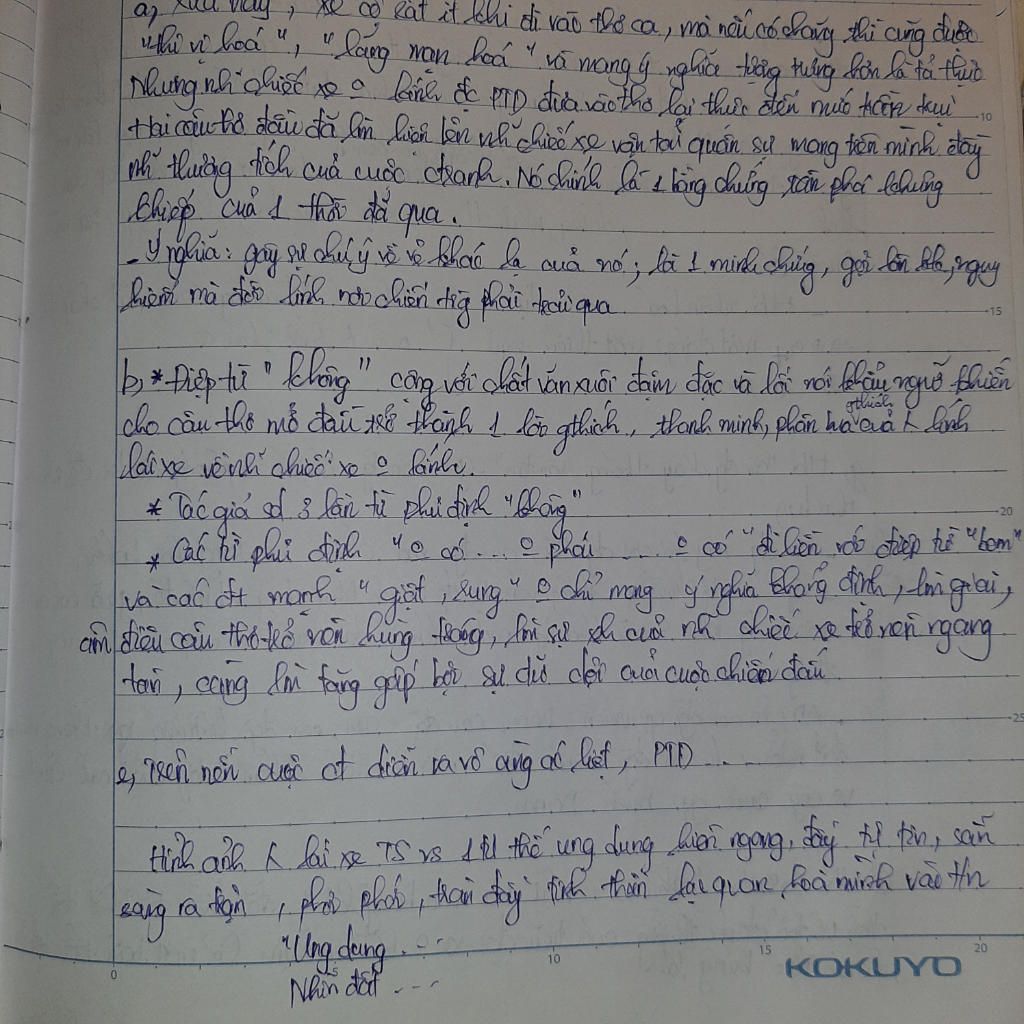 a, xưa nay, xe cộ rất ít khi đi vào thơ ca, mà nếu có chăng thì cũng được
"thi vị hoá", "lãng mạn hoá" và mang ý nghĩa tượng trưng hơn là tả thực
Nhưng nh~ chiếc xe o kính đc PTD đưa vào thơ lại thực đến mức trần trụi
10
Hai câu thơ đầu đã làm hiện lên nh~ chiếc xe vận tải quân sự mang trên mình đầy
nh~ thương tích của cuộc ctranh. Nó chính là 1 bằng chứng tàn phá khủng
khiếp của 1 thời đã qua.
- Ý nghĩa: gây sự chú ý về vẻ khác lạ của nó; là 1 minh chứng, gợi lên kk, nguy
hiểm mà đời lính nơi chiến trg phải trải qua
15
b, * Điệp từ "không" cộng với chất văn xuôi đậm đặc và lối nói khẩu ngữ khiến
cho câu thơ mở đầu trở thành 1 lời gthích, thanh minh, phân của lính
gthích
lái xe về nh~ chiếc xe o kính.
* Tác giả sd 3 lần từ phủ định "không"
20
* Các từ phủ định "o có ... o phải ... o có" đi liền với điệp từ "bom"
và các đt mạnh "giật, rung" o chỉ mang ý nghĩa khẳng định,
âm điệu câu thơ trở nên hùng tráng, làm sự xh của nh~ chiếc xe trở nên ngang
tàn, càng làm tăng gấp bội sự dữ dội của cuộc chiến đấu
25
c, Trên nền cuộc ct diễn ra vô cùng ác liệt, PTD ...
Hình ảnh lái xe TS vs 1 tư thế ung dung hiên ngang, đầy tự tin, sẵn
sàng ra trận, phơi phới, tràn đầy tinh thần lạc quan, hoà mình vào tn
"Ung dung ...
Nhìn đất ...
0 10 15 20
KOKUYO